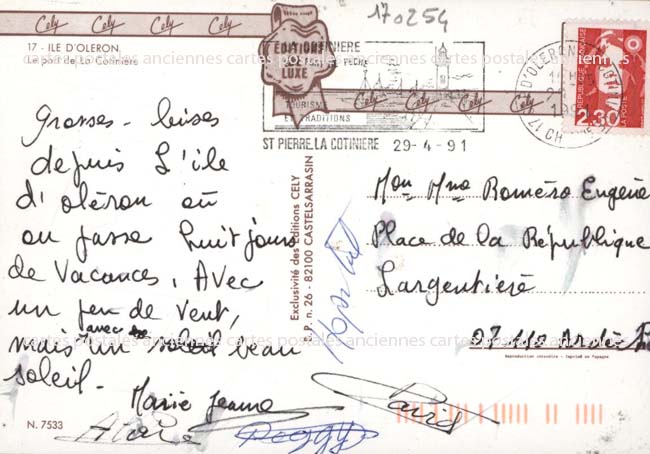 170254
Cely Cely Cely Cely Cely Cely Cely
17 - ILE D'OLERON
Le port de La Cotinière
EDITIONS
LUXE
TOURISME
ET TRADITIONS
ST PIERRE.LA COTINIERE 29-4-91
REPUBLIQUE FRANÇAISE
LA POSTE
2,30
cartes postales anciennes cartes postales anciennes cartes postales anciennes
Grosses - bises
depuis L'ile
d'oléron où
on passe huit jours
de vacances, Avec
un peu de vent,
mais avec un beau
soleil -
Marie Jeanne
Alain Peggy David
N. 7533
Exclusivité des Editions CELY
B.P. n. 26 - 82100 CASTELSARRASIN
Mon Mme Roméro Eugène
Place de la République
Largentière
07110 Ardèche
Reproduction interdite - Imprimé en Espagne